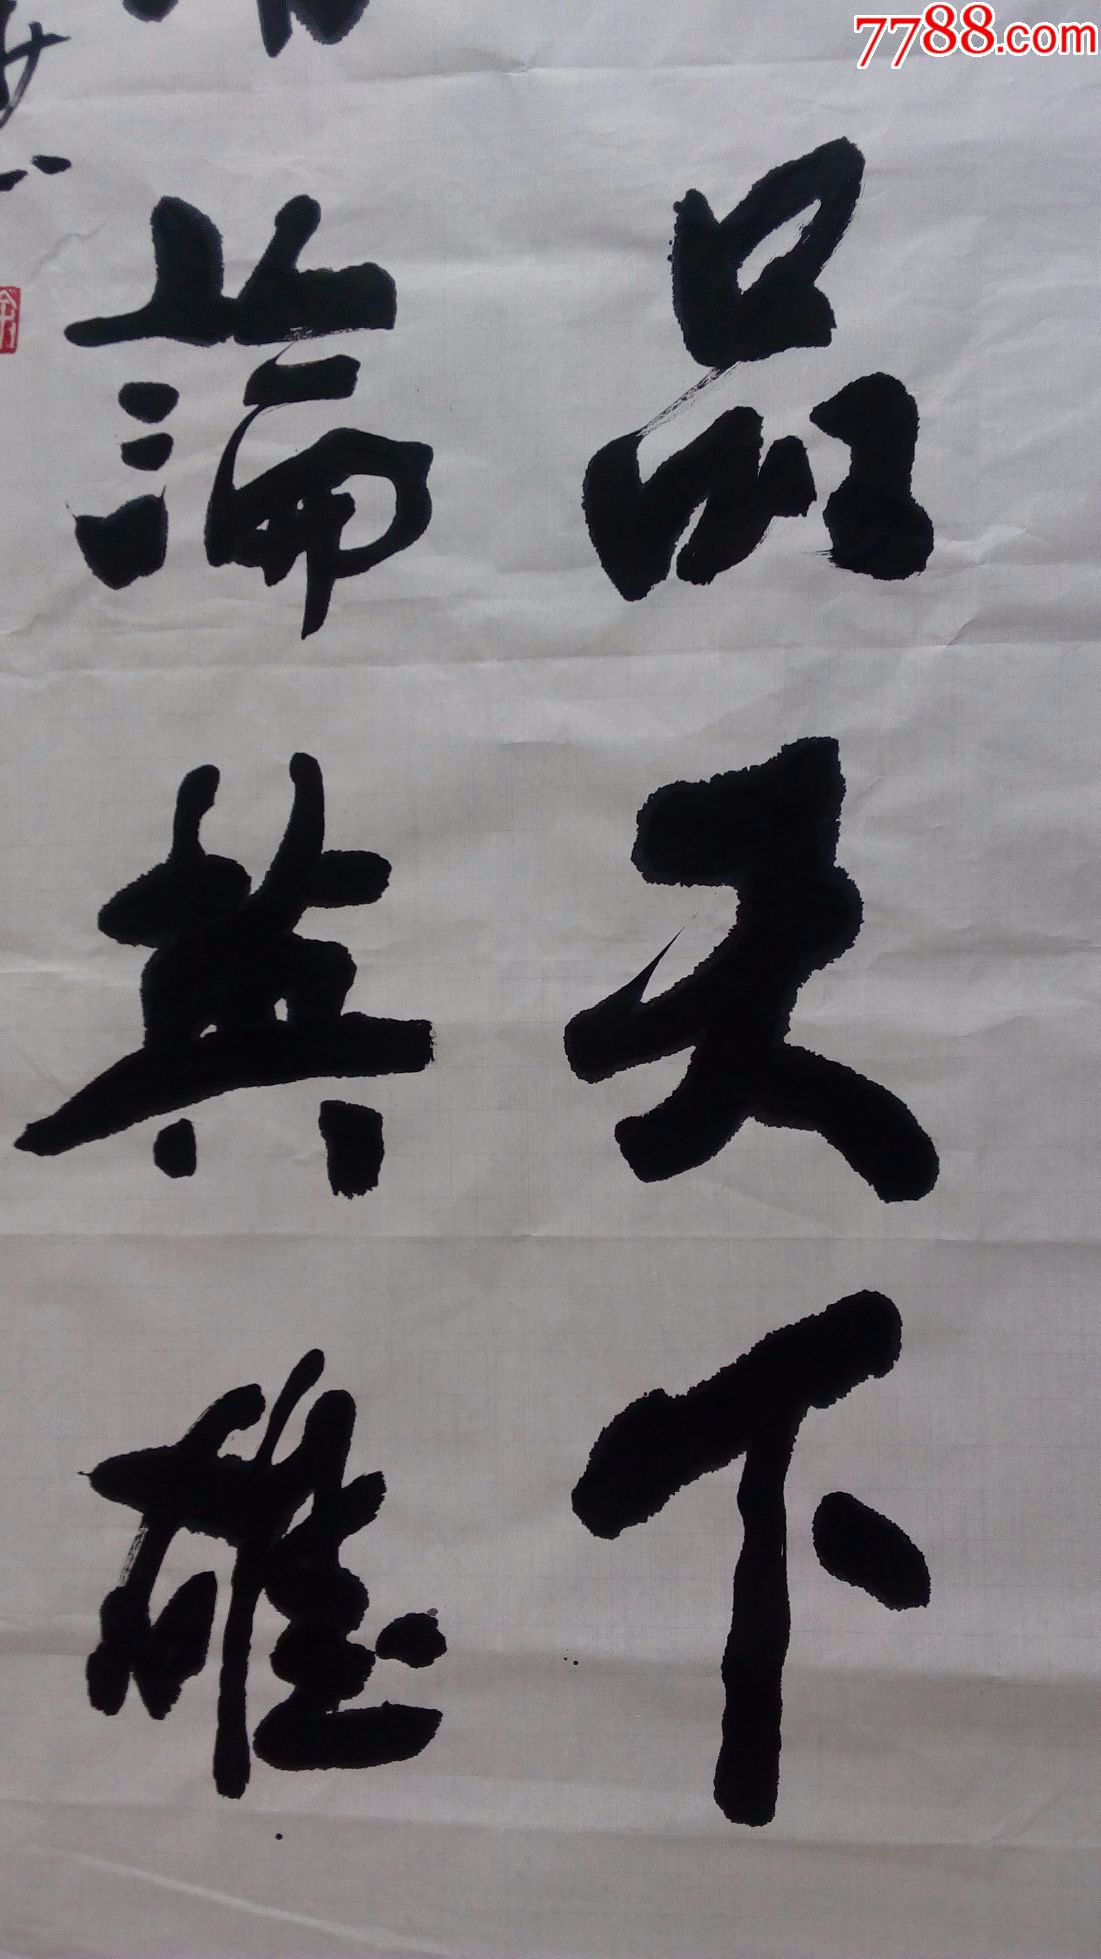 7788.com
品天下
論英雄